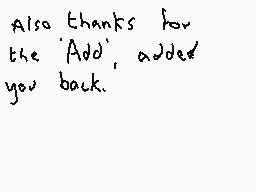 Also thanks for
the 'Add', added
you back.